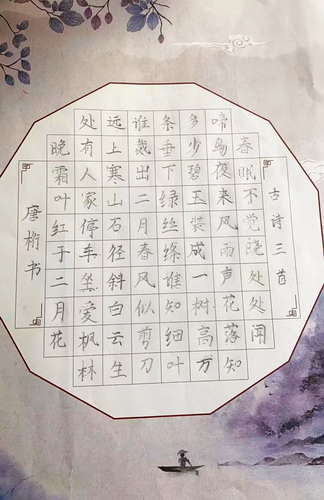 古诗三首
春眠不觉晓处处闻
啼鸟夜来风雨声花落知
多少碧玉装成一树高万
条垂下绿丝绦谁知细叶
谁裁出二月春风似剪刀
远上寒山石径斜白云生
处有人家停车坐爱枫林
晚霜叶红于二月花
唐桁书